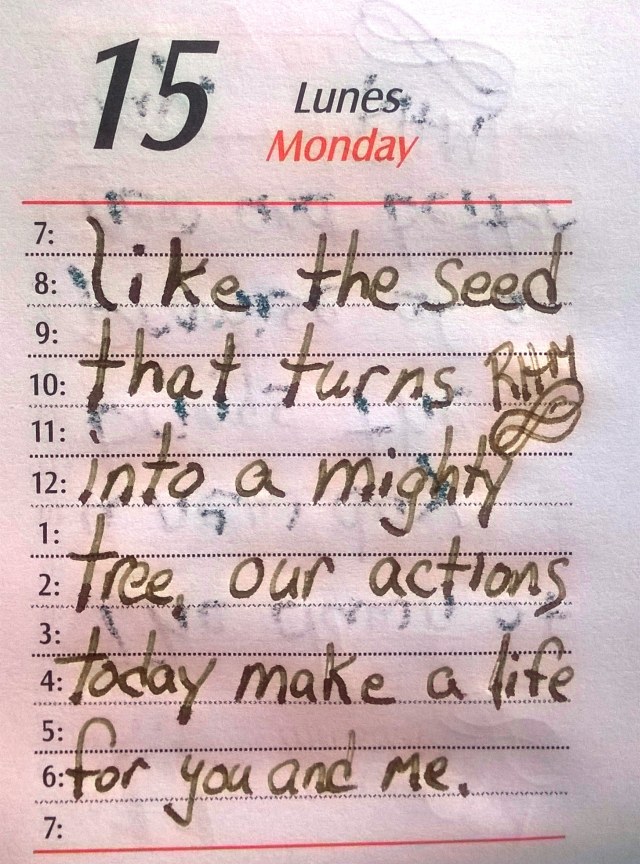 15
Lunes
Monday
7:
8: like the seed
9:
10: that turns RHM
11:
12: into a mighty
1:
2: tree, our actions
3:
4: today make a life
5:
6: for you and me.
7: